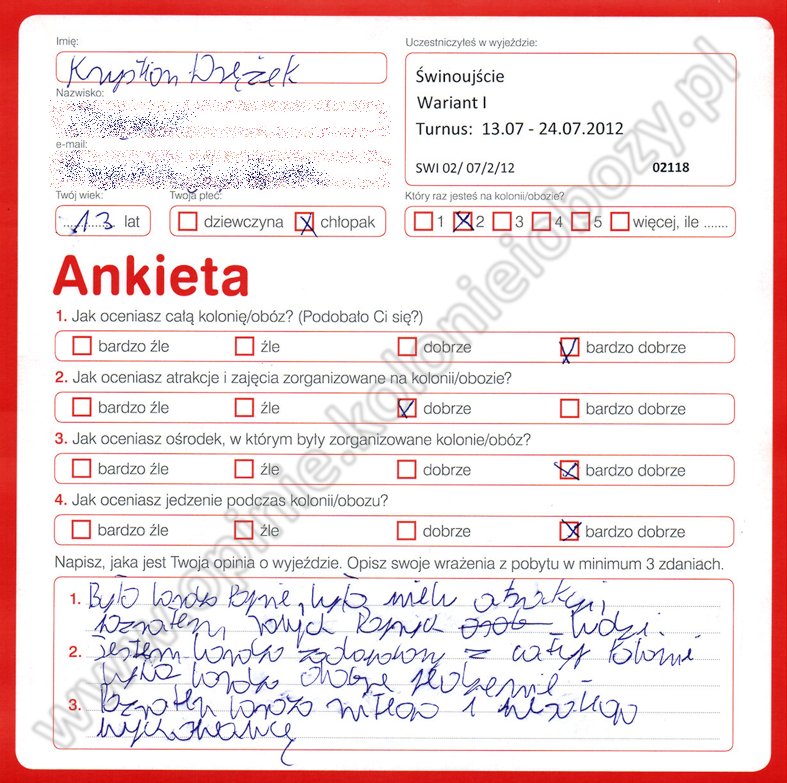 Imię:
Uczestniczyłeś w wyjeździe:
Świnoujście
Nazwisko:
Wariant I
Turnus: 13.07 - 24.07.2012
e-mail:
SWI 02/ 07/2/12 02118
Twój wiek: Twoja płeć: Który raz jesteś na kolonii/obozie?
13 lat dziewczyna chłopak 1 2 3 4 5 więcej, ile .......
Ankieta
1. Jak oceniasz całą kolonię/obóz? (Podobało Ci się?)
bardzo źle źle dobrze bardzo dobrze
2. Jak oceniasz atrakcje i zajęcia zorganizowane na kolonii/obozie?
bardzo źle źle dobrze bardzo dobrze
3. Jak oceniasz ośrodek, w którym były zorganizowane kolonie/obóz?
bardzo źle źle dobrze bardzo dobrze
4. Jak oceniasz jedzenie podczas kolonii/obozu?
bardzo źle źle dobrze bardzo dobrze
Napisz, jaka jest Twoja opinia o wyjeździe. Opisz swoje wrażenia z pobytu w minimum 3 zdaniach.
1. Było bardzo było atrakcji,
poznałem fajnych ludzi.
2. Jestem bardzo zadowolony z całej kolonii
było bardzo dobre jedzenie
3. Poznałem bardzo miłego i
wychowawcę
www.opinie.kolonieiobozy.pl